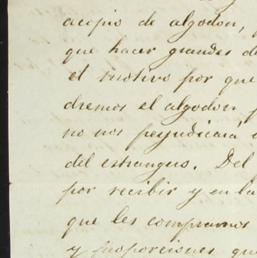 acopio de algodon,
que hacer grandes d
el motivo por que
dremos el algodon p
no nos perjudicará
del estrangero. Del
por recibir y en la
que les compramos
y proporciones que